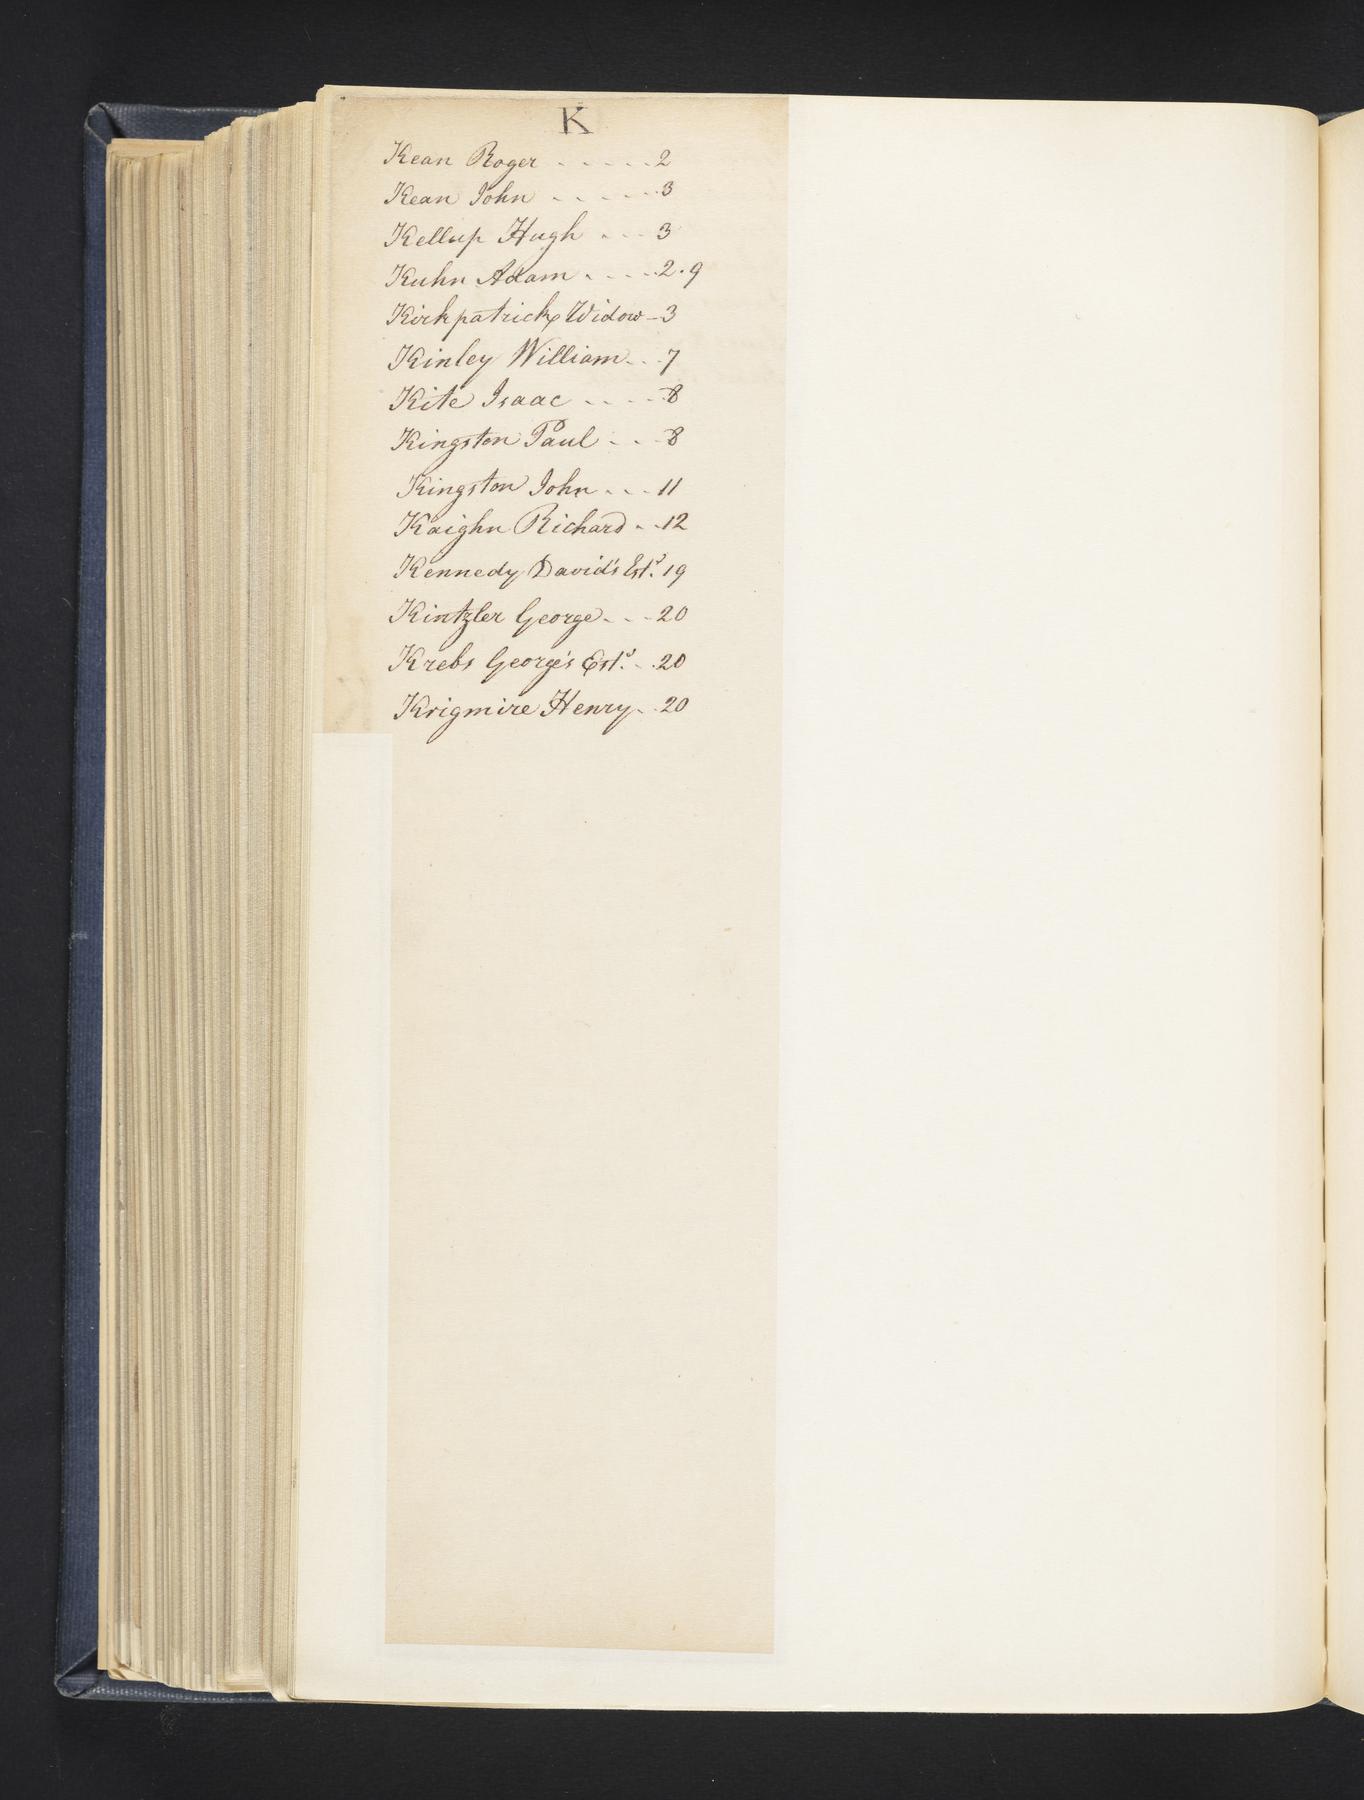 K
Kean Roger - - - - - 2
Kean John - - - - - 3
Kellup Hugh - - - 3
Kuhn Adam - - - - 2.9
Kirkpatrick Widow - 3
Kinley William - - - 7
Kite Isaac - - - - - 8
Kingston Paul - - - 8
Kingston John - - - 11
Kaighn Richard - - 12
Kennedy David's Estd. 19
Kintzler George - - - 20
Krebs George's Estd. - - 20
Krigmire Henry - - 20